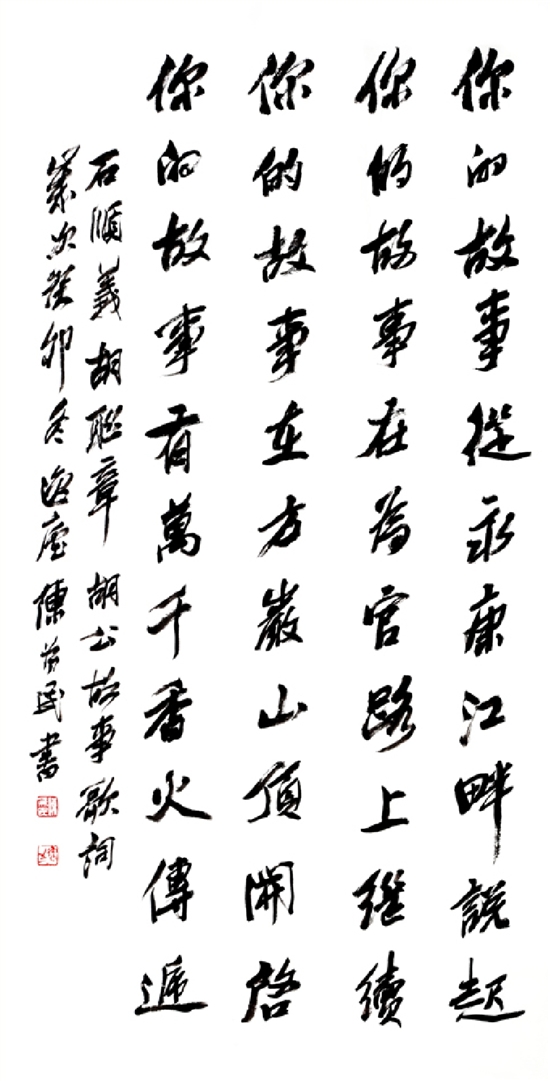 你的故事從永康江畔説起
你的故事在為官路上繼續
你的故事在方巖山頂開啓
你的故事有萬千香火傳遞
石順義胡聯章胡公故事歌詞
歲次癸卯冬 陳 民書